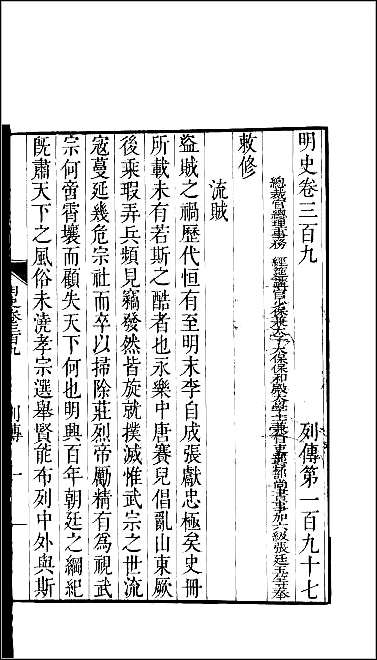 明史卷三百九　　　列傳第一百九十七
總裁官總理事務　經筵講官少保兼太子太保保和殿大學士兼管吏部戶部尚書事加六級張廷玉等奉
敕修
流賊
盜賊之禍歷代恒有至明末李自成張獻忠極矣史冊
所載未有若斯之酷者也永樂中唐賽兒倡亂山東厥
後乘瑕弄兵頻見竊發然皆旋就撲滅惟武宗之世流
寇蔓延幾危宗社而卒以掃除莊烈帝勵精有為視武
宗何啻霄壤而顧失天下何也明興百年朝廷之綱紀
旣肅天下之風俗未澆孝宗選舉賢能布列中外與斯
明史卷三百九　列傳　一